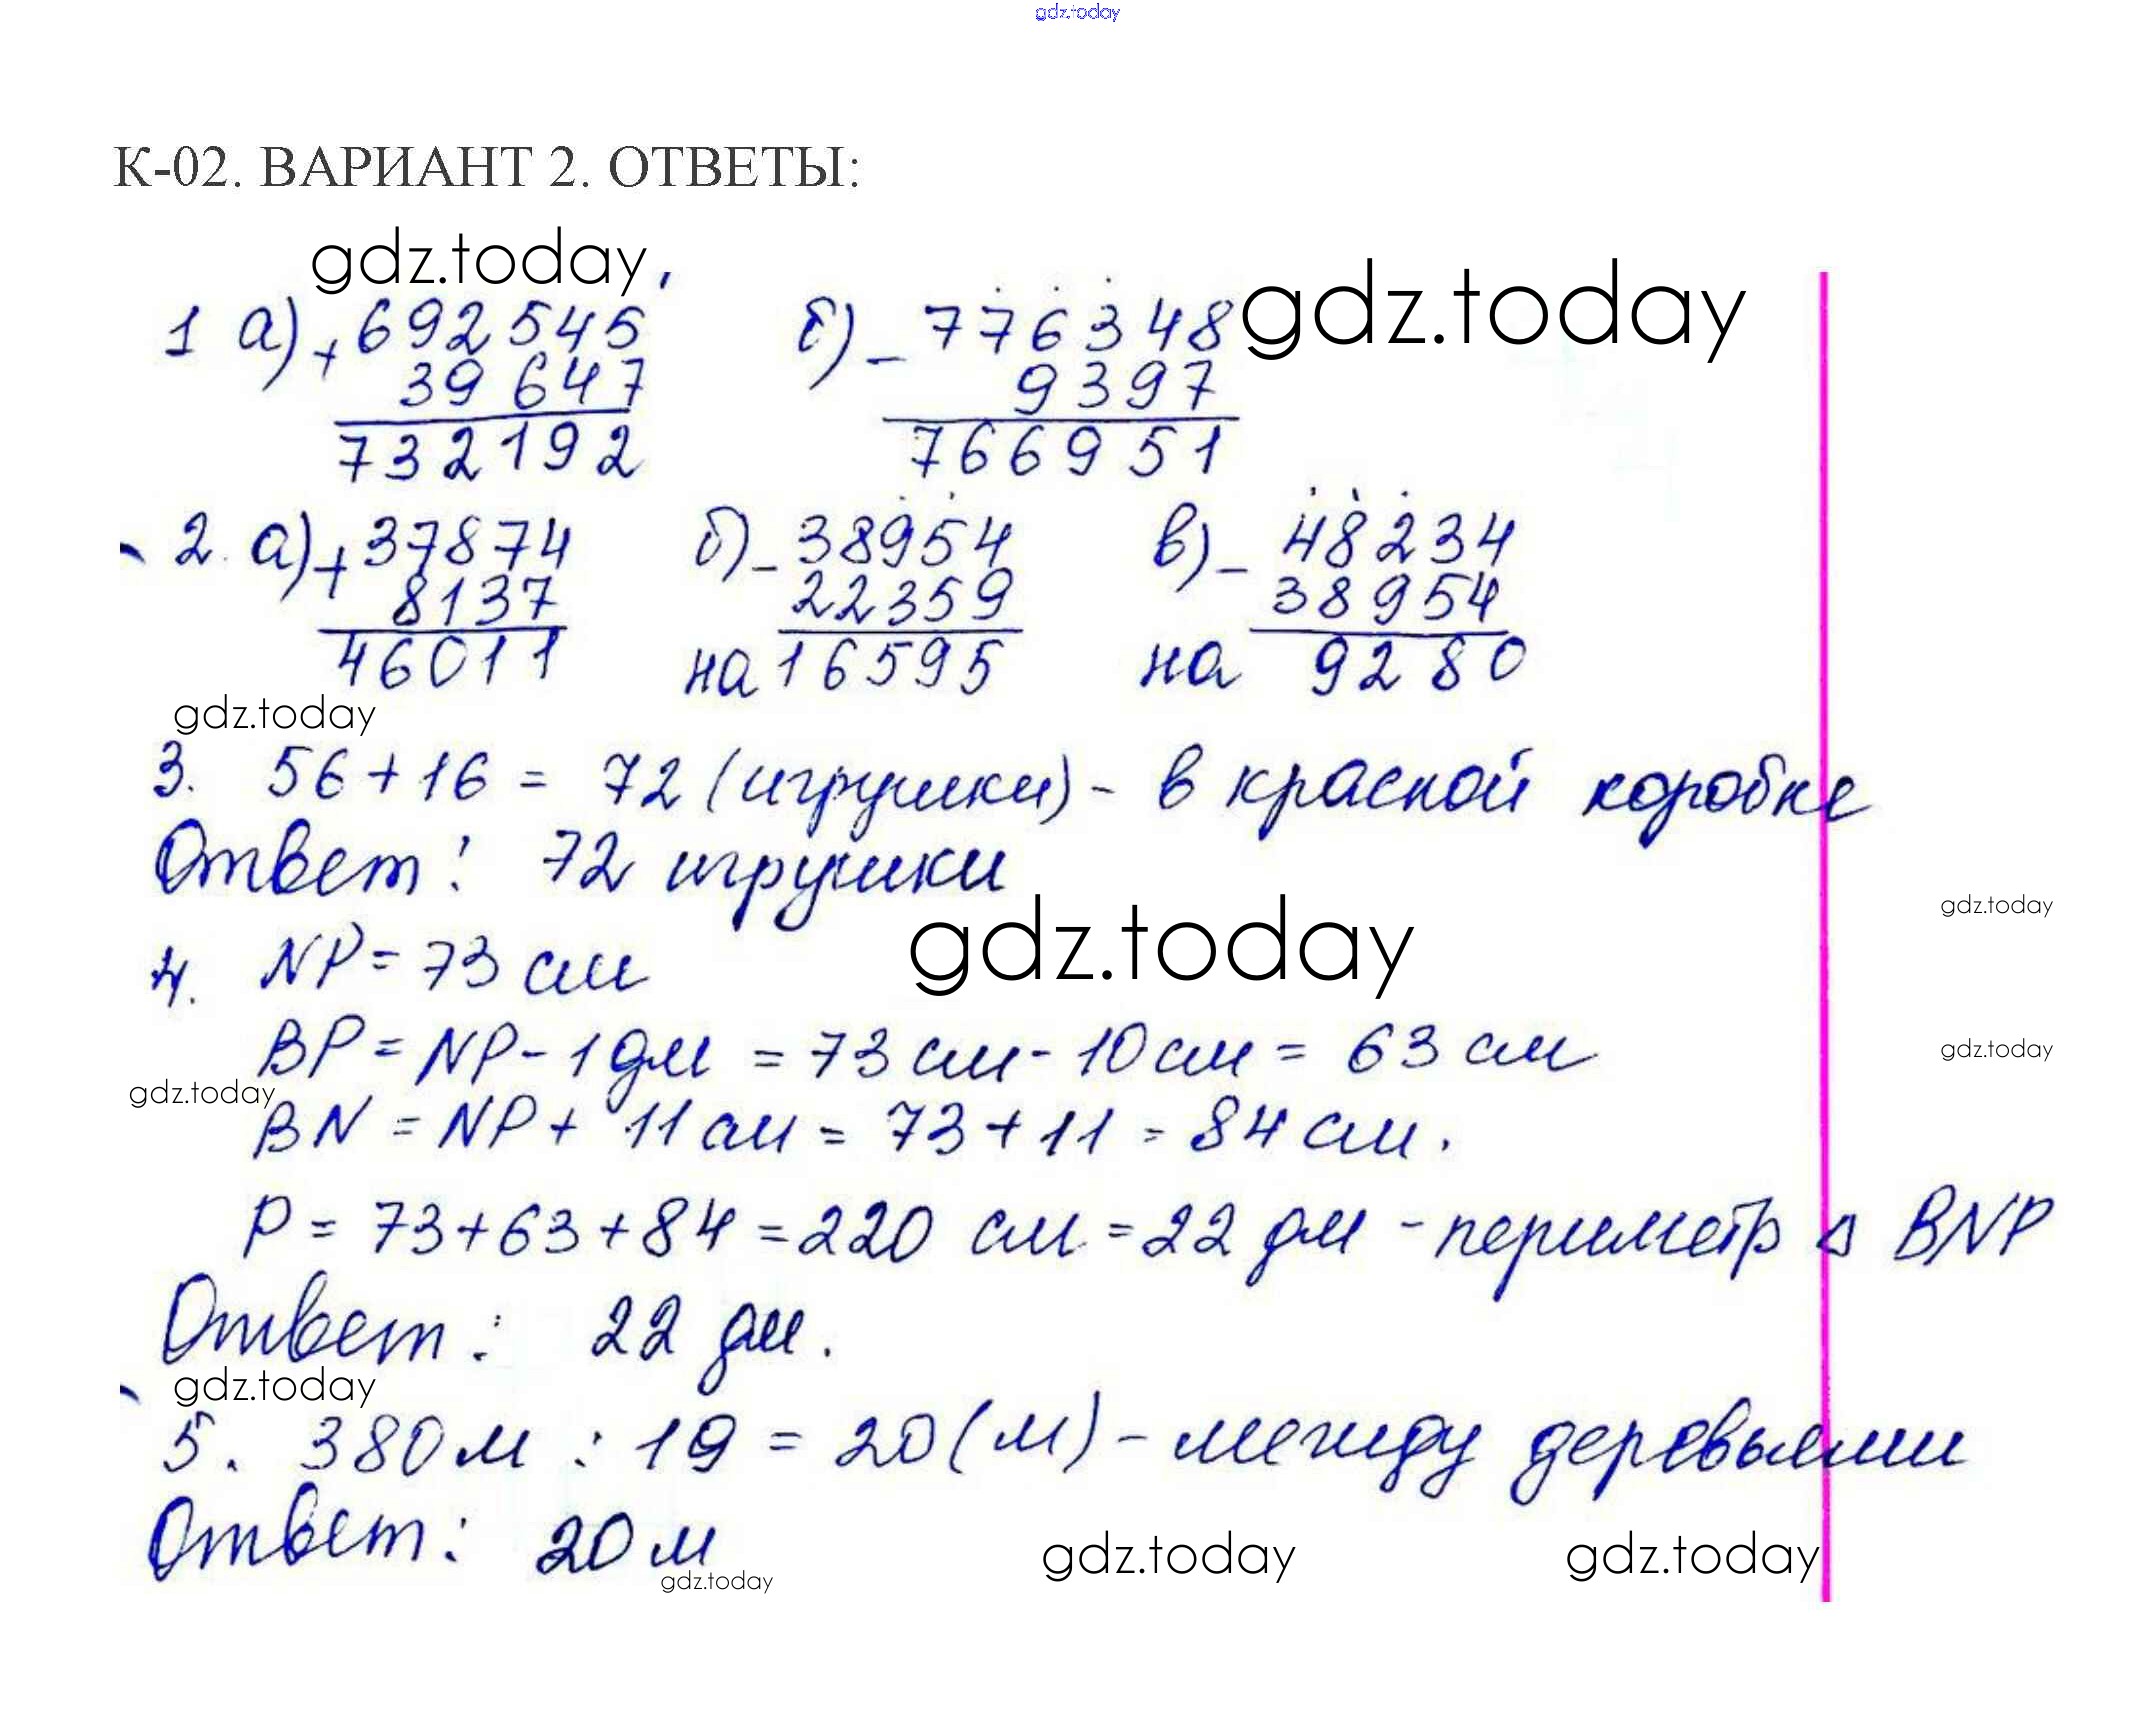 gdz.today
К-02. ВАРИАНТ 2. ОТВЕТЫ:
gdz.today
gdz.today
1 а) + 692545 б) - 776348
39647 9397
732192 766951
2. а) + 37874 б) - 38954 в) - 48234
8137 22359 38954
46011 на 16595 на 9280
gdz.today
3. 56 + 16 = 72 (игрушки) - в красной коробке
Ответ: 72 игрушки
gdz.today
gdz.today
4. NP = 73 см
BP = NP - 1 дм = 73 см - 10 см = 63 см
gdz.today
gdz.today
BN = NP + 11 см = 73 + 11 = 84 см.
P = 73 + 63 + 84 = 220 см = 22 дм - периметр △ BNP
Ответ: 22 дм.
gdz.today
5. 380 м : 19 = 20 (м) - между деревьями
Ответ: 20 м
gdz.today
gdz.today
gdz.today